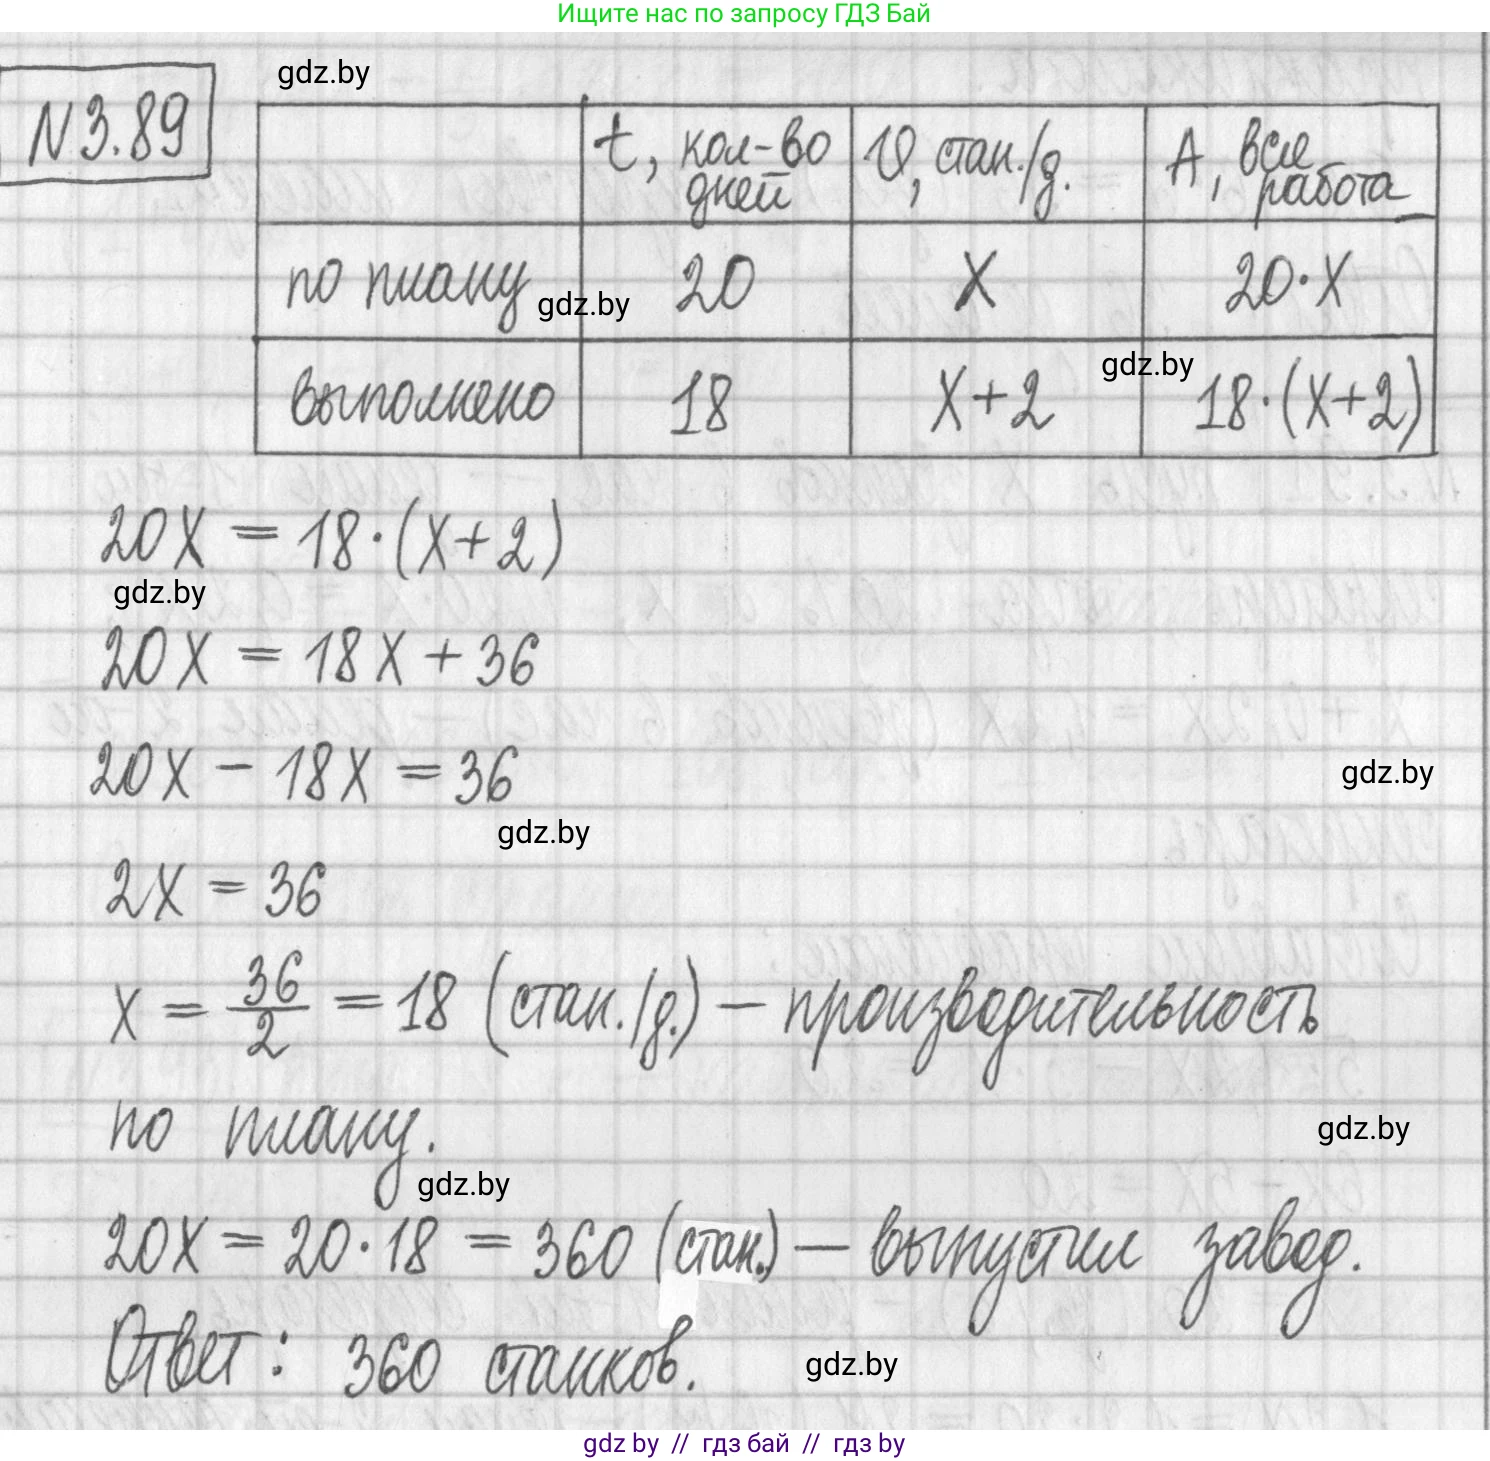 Ищите нас по запросу ГДЗ Бай
N3.89
gdz.by
t, кол-во дней
V, стан./д.
A, вся работа
по плану 20 X 20·X
gdz.by
gdz.by
выполнено 18 X+2 18·(X+2)
20X = 18·(X+2)
gdz.by
20X = 18X + 36
20X - 18X = 36
gdz.by
gdz.by
2X = 36
X = 36/2 = 18 (стан./д.) — производительность
по плану.
gdz.by
gdz.by
20X = 20·18 = 360 (стан.) — выпустил завод.
Ответ: 360 станков.
gdz.by
gdz by // гдз бай // гдз by